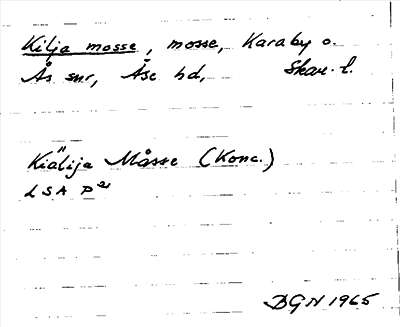 Kilja mosse, mosse, Karaby o.
Ås snr, Åse hd, Skar. l.
Kiälija Måsse (Konc.)
LSA P21
BGN 1965